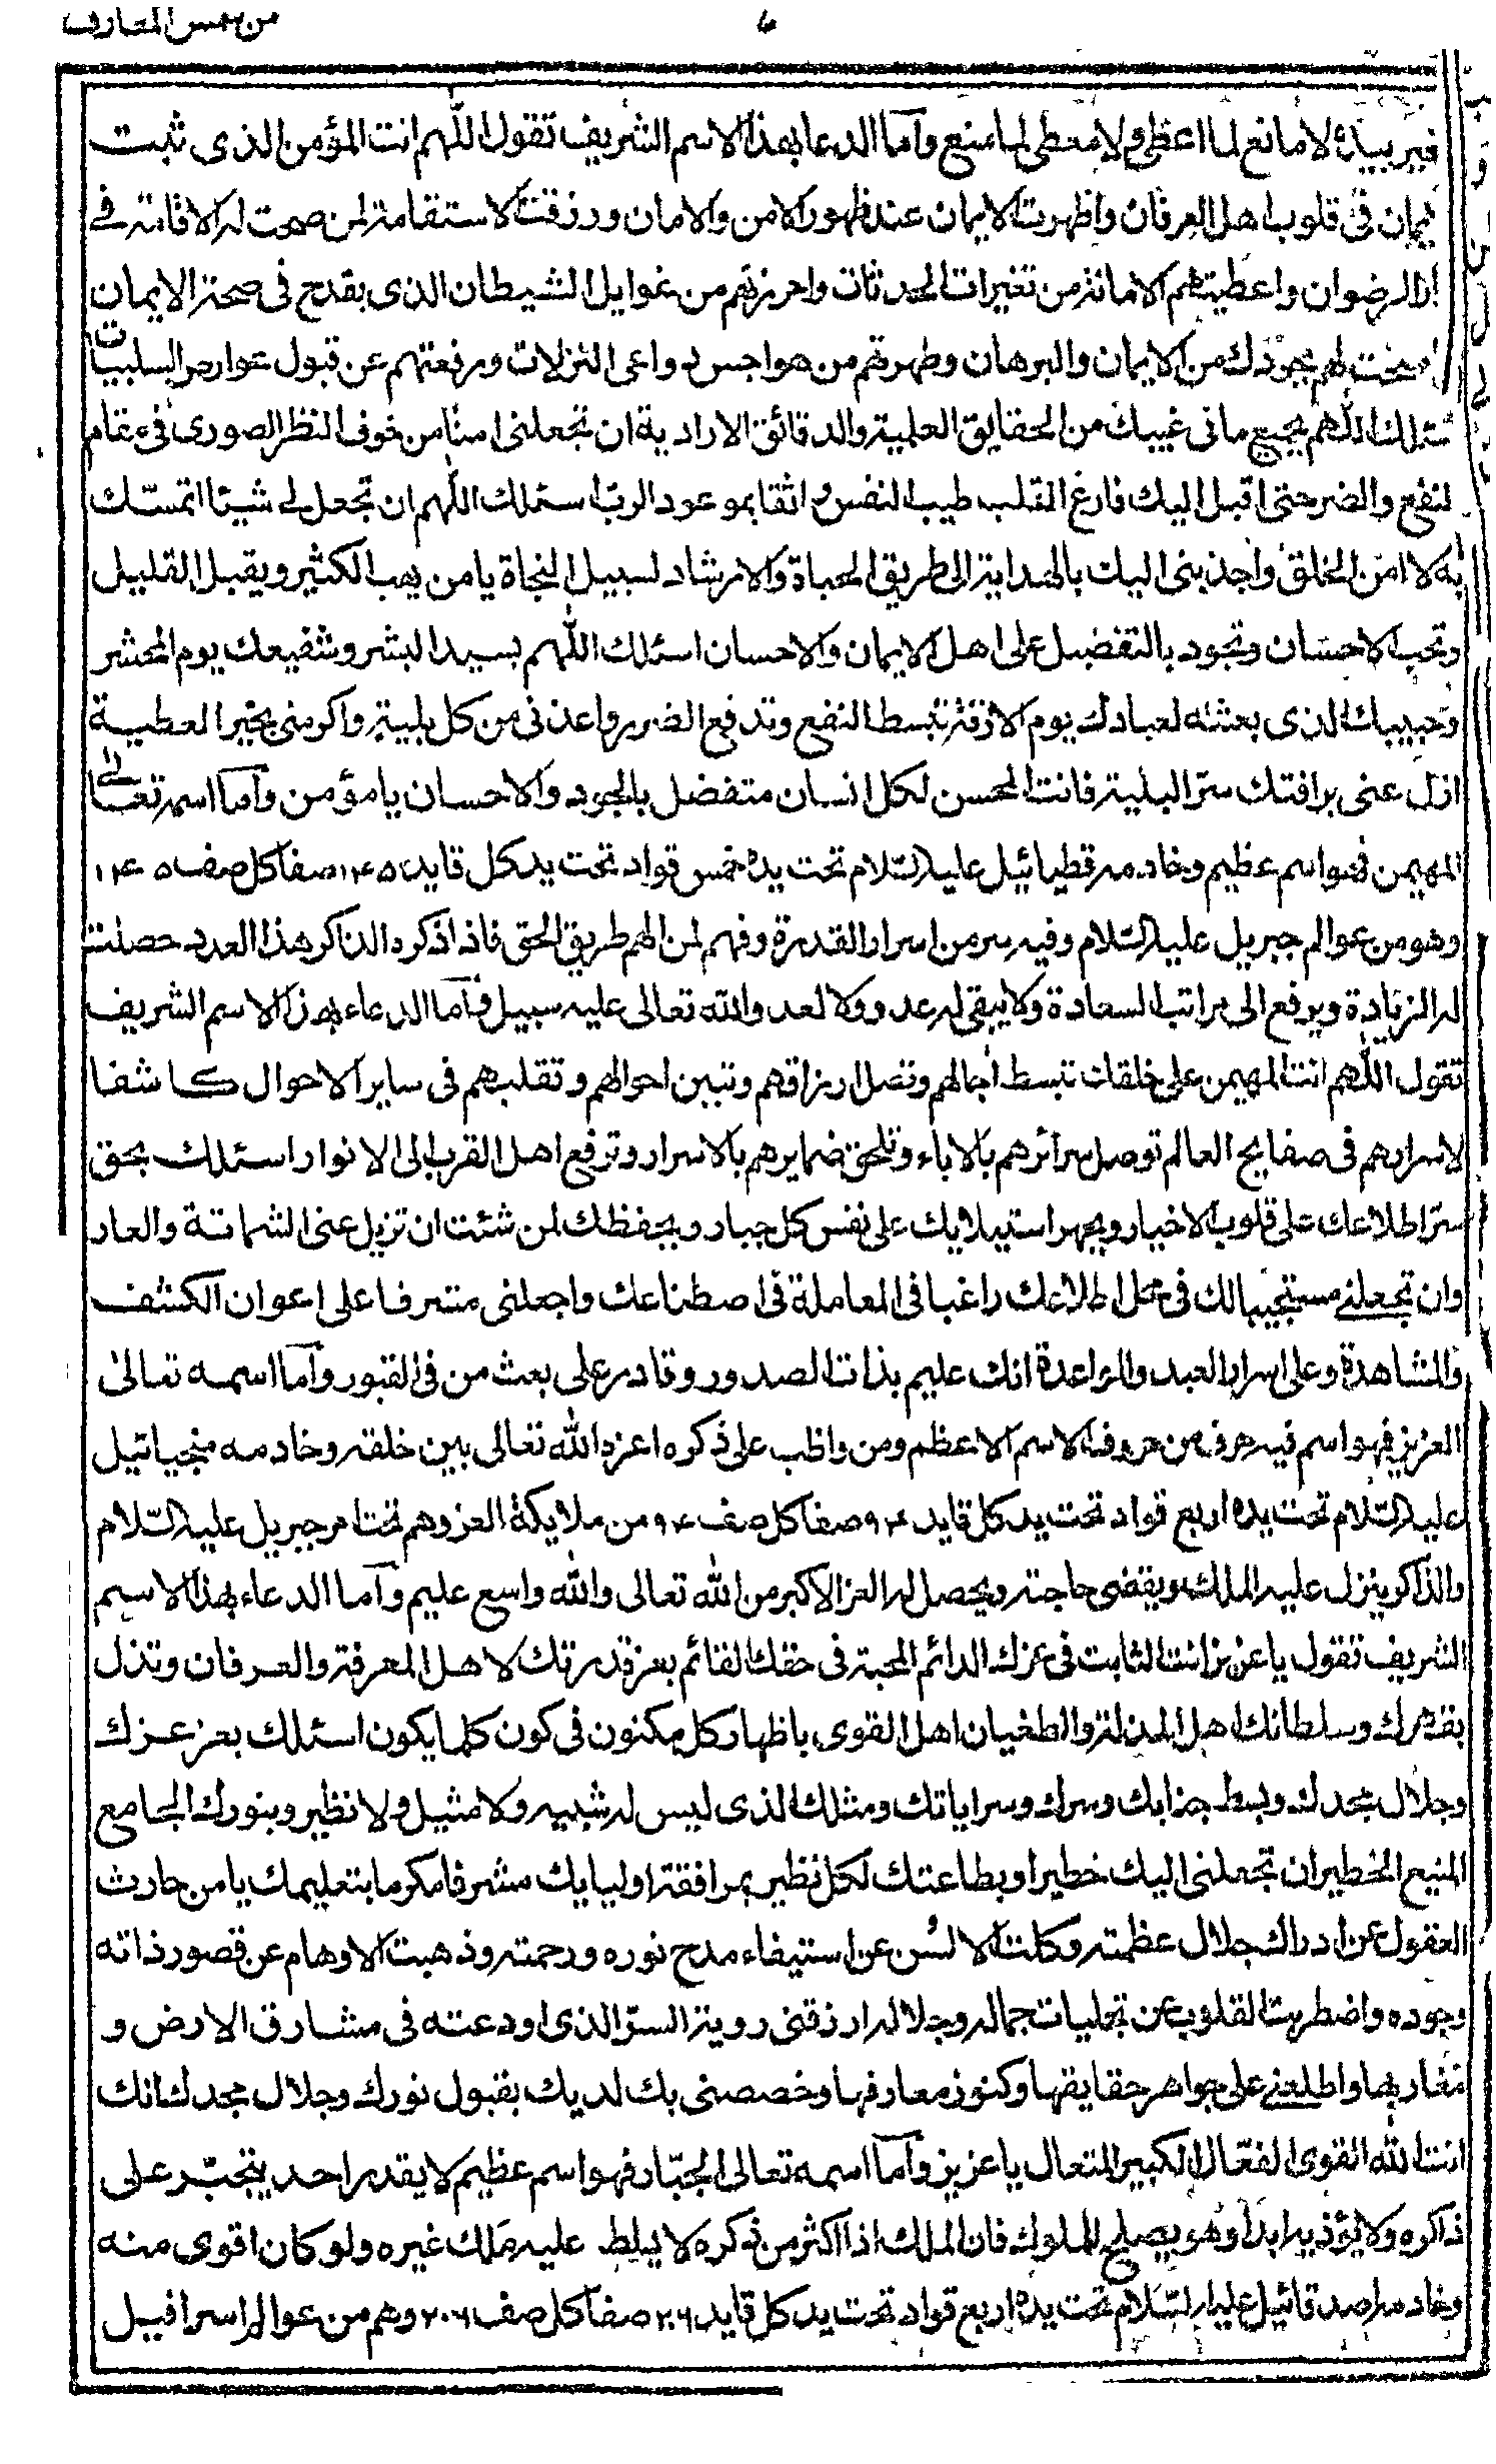 من شمس المعارف
٦
بيده لا مانع لما اعطى ولا معطى لما منع وآما الدعا بهذا الاسم الشريف تقول اللهم انت المؤمن الذى ثبت
فى قلوب اهل العرفان واظهرت الايمان عند ظهور الامن والامان ورزقت الاستقامة لمن صحت له الاقامة فے
الرضوان واعطيتهم الامانة من تغيرات الحدثات واحرزتهم من غوايل الشيطان الذى يقدح فى صحة الايمان
لهم بجودك من الايمان والبرهان وطهرتهم من هواجس دواعى التنزلات ورفعتهم عن قبول عوارض السلبيات
اللهم بجميع ما فى غيبك من الحقايق العلمية والدقائق الارادية ان تجعلنى امنا من خوف النظر الصورى فى مقام
لنفع والضر حتى اقبل اليك فارغ القلب طيب النفس واثقا بموعود الرب اسئلك اللهم ان تجعل لے شيئا اتمسّك
به لا امن الخلق واجذبنى اليك بالهداية الى طريق الحياة والارشاد لسبيل النجاة يا من يهب الكثير ويقبل القليل
وتحب الاحسان وتجود بالتفضيل على اهل الايمان والاحسان اسئلك اللهم بسيد البشر وشفيعك يوم المحشر
وحبيبك الذى بعثته لعبادك يوم الازفة تبسط النفع وتدفع الضرر واعذنى من كل بلية واكرمنى بخير العطية
ازل عنى برافتك ستر البلية فانت المحسن لكل انسان متفضل بالجود والاحسان يا مؤمن وآما اسمه تعالے
المهيمن فهو اسم عظيم وخادمه رقطيائيل عليه السّلام تحت يده خمس قواد تحت يد كل قايد ١٤٥ صفا كل صف ١٤٥
وهو من عوالم جبريل عليه السّلام وفيه سر من اسرار القدرة وفهم لمن الهم طريق الحق فاذا ذكره الذاكر هذا العدد حصلت
له الزيادة ويرفع الى مراتب السعادة ولا يبقى له عدو ولا لعد والله تعالى عليه سبيل وآما الدعاء بهذا الاسم الشريف
تقول اللهم انت المهيمن على خلقات تبسط اجالهم وتصل ارزاقهم وتبين احوالهم وتقلبهم فى ساير الاحوال كاشفا
لاسرارهم فى صفايح العالم توصل سرائرهم بالاباء وتلحق ضمايرهم بالاسرار وترفع اهل القرب الى الانوار اسئلك بحق
ستر اطلاعك على قلوب الاخيار وبجهر استيلايك على نفس كل جبار وبحفظك لمن شئت ان تزيل عنى الشماتة والعار
وان تجعلنے مستجيبا لك فى محل اطلاعك راغبا فى المعاملة فى اصطناعك واجعلنى متصرفا على اعوان الكشف
والمشاهدة وعلى اسرار العبد والمراعدة انك عليم بذات الصدور وقادر على بعث من فى القبور وآما اسمه تعالى
العزيز فهو اسم فيه حرف من حروف الاسم الاعظم ومن واظب على ذكره اعزه الله تعالى بين خلقه وخادمه منجيائيل
عليه السّلام تحت يده اربع قواد تحت يد كل قايد ٩٤ صفا كل صف ٩٤ من ملايكة العز وهم تحت امر جبريل عليه السّلام
والذاكر ينزل عليه الملك ويقضى حاجته ويحصل له العز الاكبر من الله تعالى والله واسع عليم وآما الدعاء بهذا الاسم
الشريف تقول يا عزيز انت الثابت فى عزك الدائم المحبة فى حقك القائم بعز قدرتك لاهل المعرفة والعرفان وتذل
بقهرك وسلطانك اهل المذلة والطغيان اهل القوى باظهار كل مكنون فى كون كلما يكون اسئلك بعز عزك
وجلال مجدك وبسط جزابك وسرك وسراياتك ومثلك الذى ليس له شبيه ولا مثيل ولا نظير وبنورك الجامع
المنيع الخطير ان تجعلنى اليك خطيرا وبطاعتك لكل نظير بمرافقة اوليايك مشرفا مكرما بتعليمك يا من حارث
العقول عن ادراك جلال عظمته وكلت الالسن عن استيفاء مدح نوره ورحمته وذهبت الاوهام عن قصور ذاته
وجوده واضطربت القلوب عن تجليات جماله وجلاله ارزقنى روية السرّ الذى اودعته فى مشارق الارض و
مغاربها واطلعنے على جواهر حقايقها وكنوز معارفها وخصصنى بك لديك بقبول نورك وجلال مجدك انك
انت الله القوى الفعّال الكبير المتعال يا عزيز وآما اسمه تعالى الجبّار فهو اسم عظيم لا يقدر احد يتجبّر على
ذاكره ولا يؤذيه ابدا وهو يصلح للملوك فان الملك اذا اكثر من ذكره لا يسلط عليه ملك غيره ولو كان اقوى منه
وخادمه اصدقائيل عليه السّلام تحت يده اربع قواد تحت يد كل قايد ٢٠٦ صفا كل صف ٢٠٦ وهم من عوالم اسرافيل